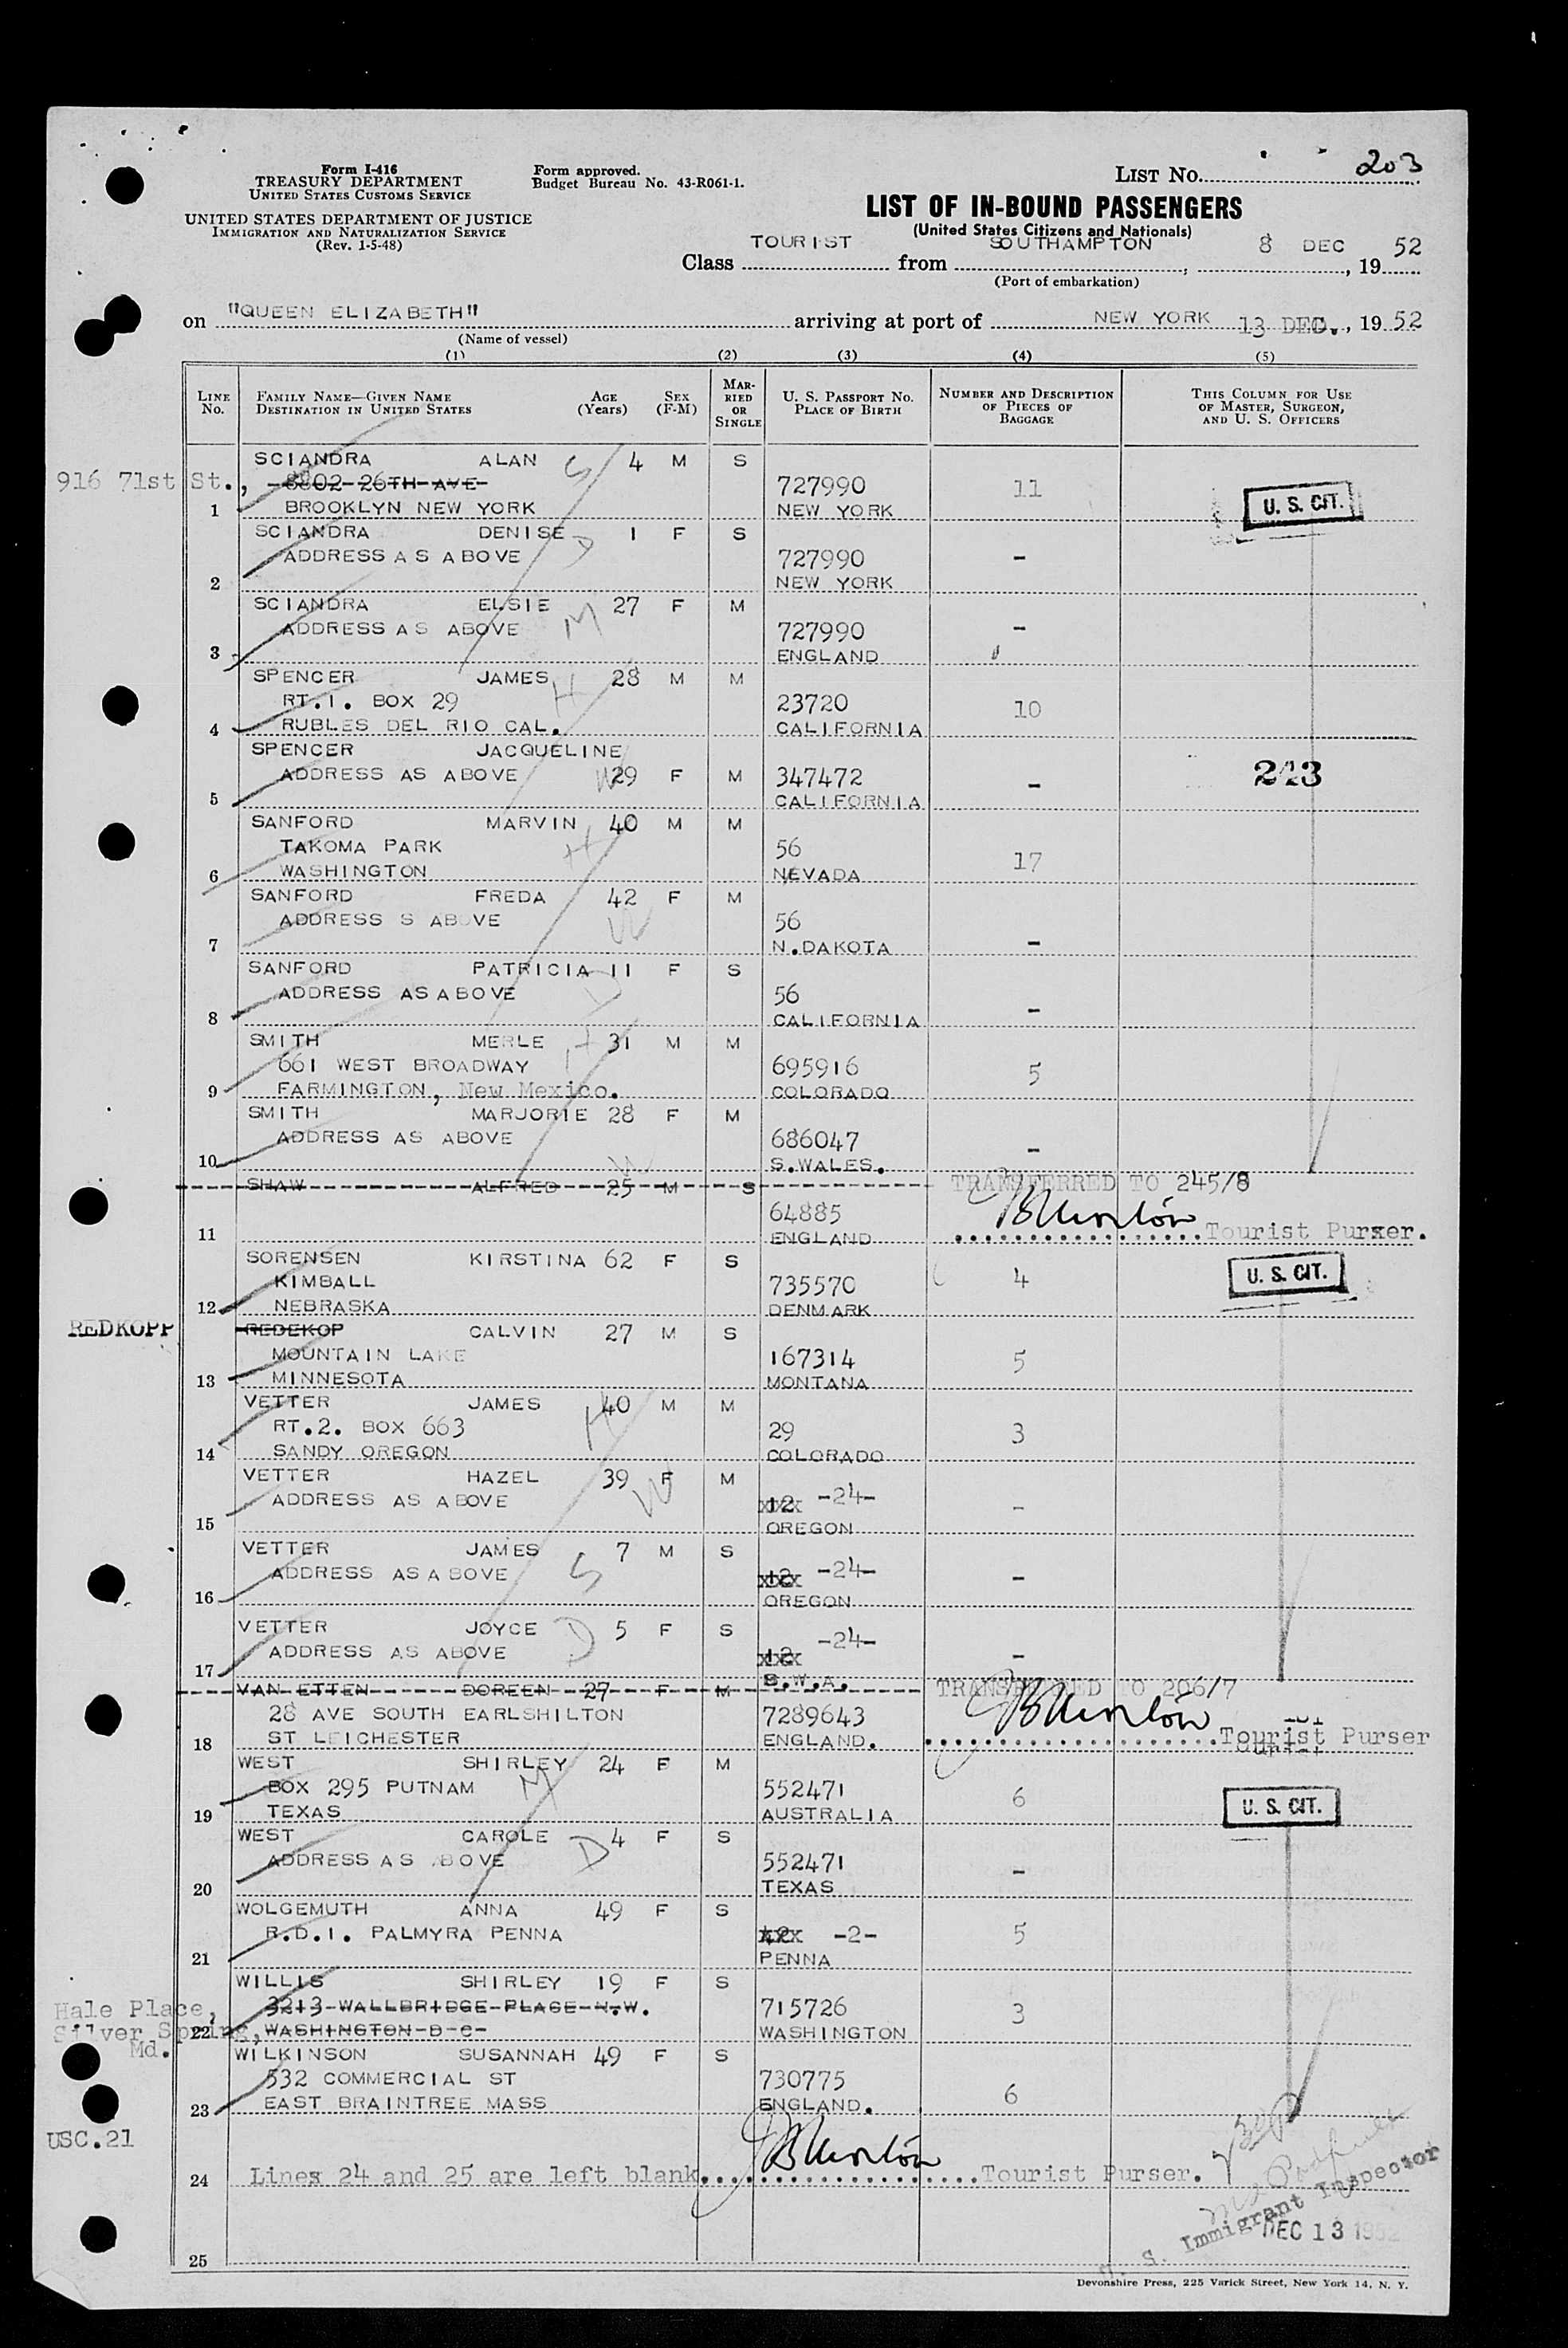 Form I-416
TREASURY DEPARTMENT
UNITED STATES CUSTOMS SERVICE
UNITED STATES DEPARTMENT OF JUSTICE
IMMIGRATION AND NATURALIZATION SERVICE
(Rev. 1-5-48)
Form approved.
Budget Bureau No. 43-R061-1.
LIST No. 203
LIST OF IN-BOUND PASSENGERS
(United States Citizens and Nationals)
Class TOURIST from SOUTHAMPTON, 8 DEC, 19 52
(Port of embarkation)
on "QUEEN ELIZABETH" arriving at port of NEW YORK 13 DEC., 19 52
(Name of vessel)
(1) (2) (3) (4) (5)
LINE No. FAMILY NAME—GIVEN NAME DESTINATION IN UNITED STATES AGE (Years) SEX (F-M) MARRIED OR SINGLE U. S. PASSPORT NO. PLACE OF BIRTH NUMBER AND DESCRIPTION OF PIECES OF BAGGAGE THIS COLUMN FOR USE OF MASTER, SURGEON, AND U. S. OFFICERS
SCIANDRA ALAN S 4 M S
916 71st St., 8802 26TH AVE 727990 11 U. S. CIT.
1 BROOKLYN NEW YORK NEW YORK
SCIANDRA DENISE 1 F S
ADDRESS AS ABOVE D 727990 -
2 NEW YORK
SCIANDRA ELSIE 27 F M
ADDRESS AS ABOVE M 727990 -
3 ENGLAND
SPENCER JAMES H 28 M M
RT.1. BOX 29 23720 10
4 RUBLES DEL RIO CAL. CALIFORNIA
SPENCER JACQUELINE
ADDRESS AS ABOVE W 29 F M 347472 - 243
5 CALIFORNIA
SANFORD MARVIN 40 M M
TAKOMA PARK H 56 17
6 WASHINGTON NEVADA
SANFORD FREDA 42 F M
ADDRESS S ABOVE W 56 -
7 N.DAKOTA
SANFORD PATRICIA 11 F S
ADDRESS AS ABOVE 56 -
8 CALIFORNIA
SMITH MERLE H 31 M M
661 WEST BROADWAY 695916 5
9 FARMINGTON, New Mexico. COLORADO
SMITH MARJORIE 28 F M
ADDRESS AS ABOVE 686047 -
10 W S.WALES.
SHAW ALFRED 25 M S TRANSFERRED TO 245/8
64885
11 ENGLAND Tourist Purser.
SORENSEN KIRSTINA 62 F S
KIMBALL 735570 4 U. S. CIT.
12 NEBRASKA DENMARK
REDKOPP REDEKOP CALVIN 27 M S
MOUNTAIN LAKE 167314 5
13 MINNESOTA MONTANA
VETTER JAMES H 40 M M
RT.2. BOX 663 29 3
14 SANDY OREGON COLORADO
VETTER HAZEL 39 F M
ADDRESS AS ABOVE W 12 -24- -
15 OREGON
VETTER JAMES 7 M S
ADDRESS AS ABOVE S 12 -24- -
16 OREGON
VETTER JOYCE D 5 F S
ADDRESS AS ABOVE 12 -24- -
17 S.W.A.
VAN ETTEN DOREEN 27 F M TRANSFERRED TO 206/7
28 AVE SOUTH EARLSHILTON 7289643
18 ST LEICHESTER ENGLAND. Tourist Purser
WEST SHIRLEY 24 F M
BOX 295 PUTNAM M 552471 6 U. S. CIT.
19 TEXAS AUSTRALIA
WEST CAROLE 4 F S
ADDRESS AS BOVE D 552471 -
20 TEXAS
WOLGEMUTH ANNA 49 F S
R.D.1. PALMYRA PENNA -2- 5
21 PENNA
WILLIS SHIRLEY 19 F S
Hale Place, 3213 WALLBRIDGE PLACE N.W. 715726 3
Silver Spring, 22 WASHINGTON D C WASHINGTON
Md.
WILKINSON SUSANNAH 49 F S
532 COMMERCIAL ST 730775 6
23 EAST BRAINTREE MASS ENGLAND.
USC.21
24 Lines 24 and 25 are left blank. Tourist Purser.
U. S. Immigrant Inspector
DEC 13 1952
25
Devonshire Press, 225 Varick Street, New York 14, N. Y.